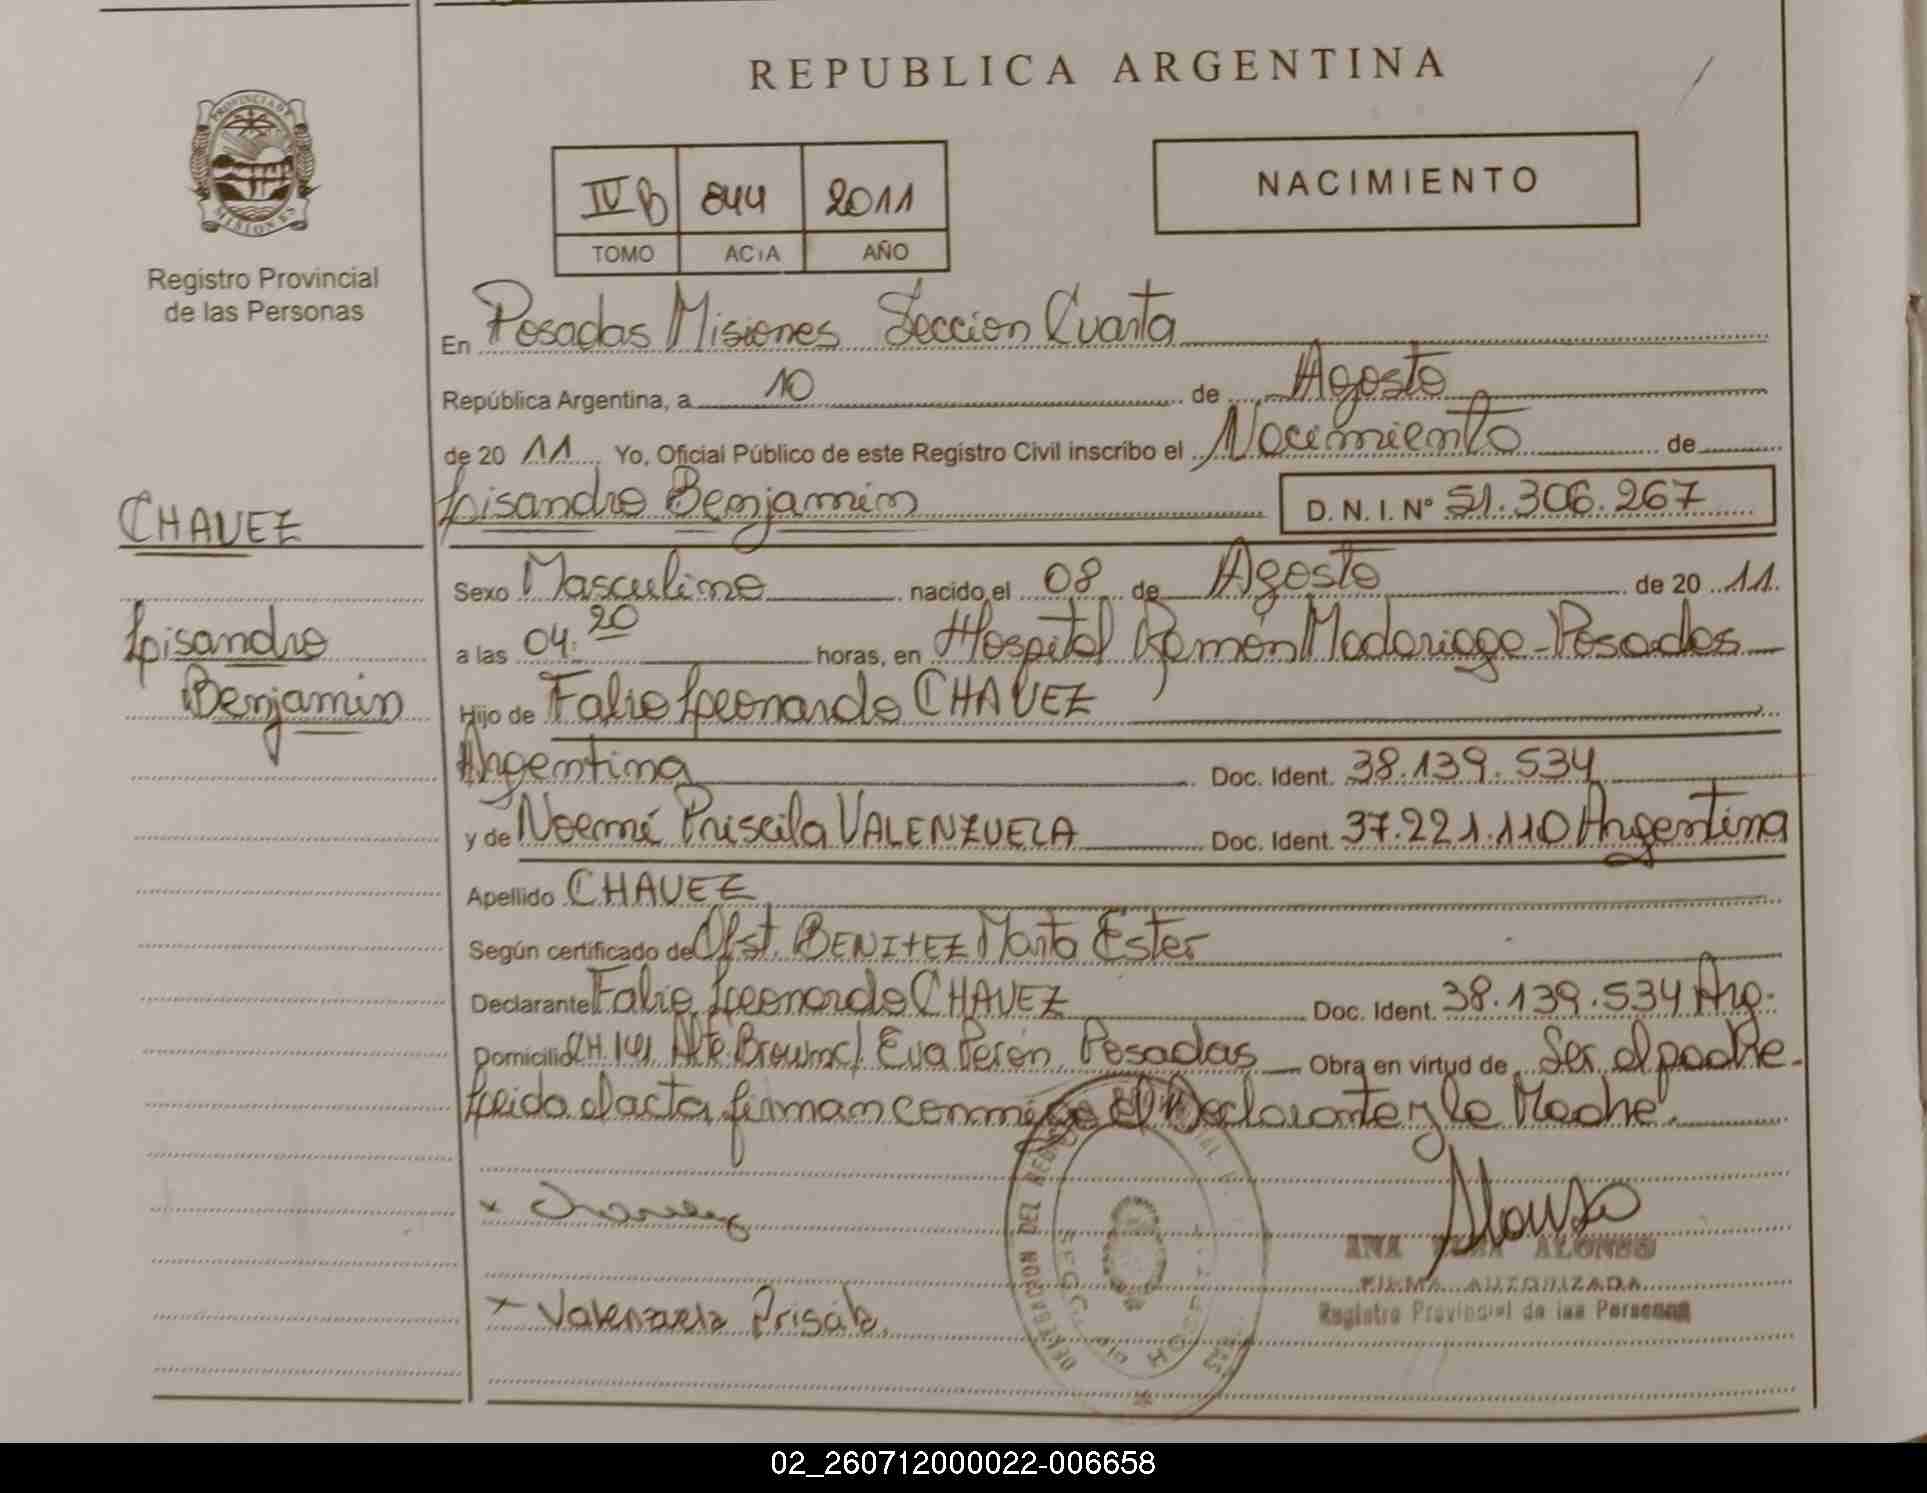 REPUBLICA ARGENTINA
PROVINCIA DE
MISIONES
Registro Provincial
de las Personas
IV B 844 2011
TOMO ACTA AÑO
NACIMIENTO
En Posadas Misiones Seccion Cuarta
República Argentina, a 10 de Agosto
de 20 11 Yo, Oficial Público de este Registro Civil inscribo el Nacimiento de
CHAVEZ
Lisandro Benjamin
Lisandro Benjamin D. N. I. Nº 51.306.267
Sexo Masculino nacido el 08 de Agosto de 20 11.
a las 04:20 horas, en Hospital Ramón Madariaga - Posadas
Hijo de Fabio Leonardo CHAVEZ
Argentina Doc. Ident. 38.139.534
y de Noemí Priscila VALENZUELA Doc. Ident. 37.221.110 Argentina
Apellido CHAVEZ
Según certificado de Obst. BENITEZ Marta Ester
Declarante Fabio Leonardo CHAVEZ Doc. Ident. 38.139.534 Arg.
Domicilio CH. 141 Alte. Brown c/ Eva Perón, Posadas Obra en virtud de Ser el padre.
Leida el acta, firman conmigo el Declarante y la Madre.
x Chavez
x Valenzuela Prisila
Alonso
ANA ALONSO
FIRMA AUTORIZADA
Registro Provincial de las Personas
02_260712000022-006658